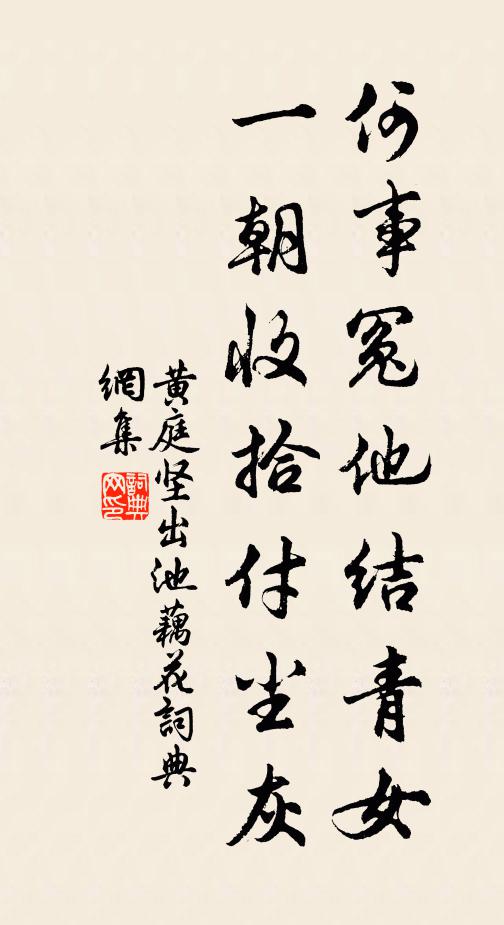 何事冤他结青女
一朝收拾付尘灰
黄庭坚出池藕花詞典
網集
詞典网印